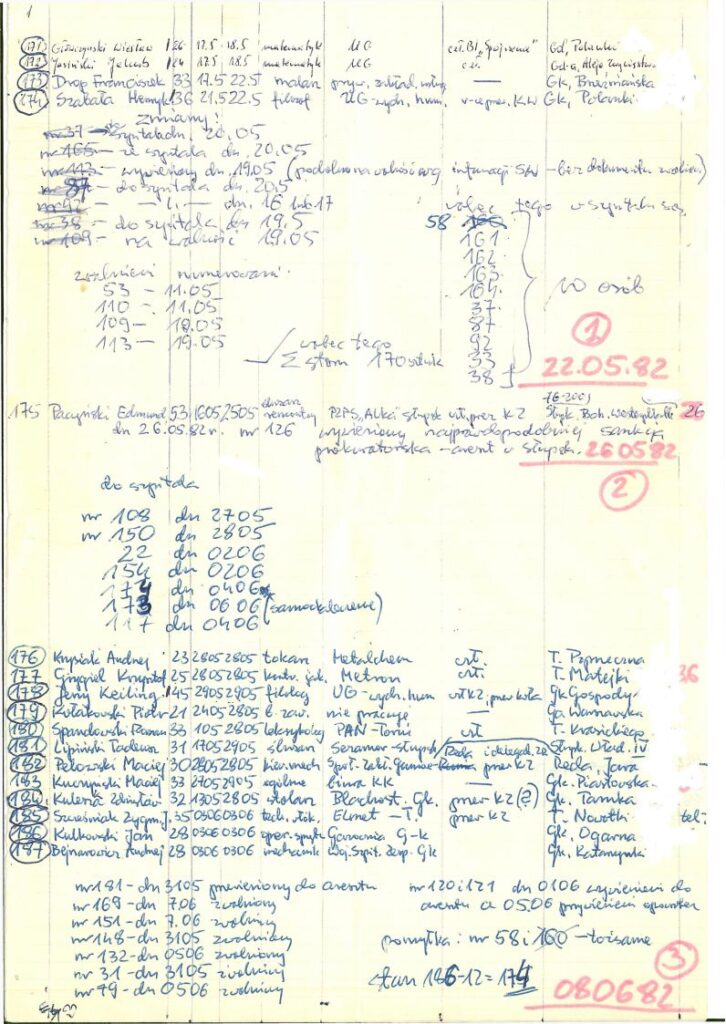 1
171 Wiesław 26 17.5 18.5 matematyk UG czł. BI „Spojrzenie" Gd, Polanki
172 Jasiński Jakub 24 17.5 18.5 matematyk UG Gd-a, Aleja
173 Drop Franciszek 33 17.5 22.5 malarz pryw. zakład. — Gk,
174 Szabała Henryk 36 21.5 22.5 filozof UG-wych. hum. v-ce przew. KW Gk, Polanki
zmiany:
nr 37 — szpitala dn. 20.05
nr 165 — ze szpitala dn. 20.05
nr 113 — wywieziony dn. 19.05 (podobno na wolność wg informacji SW – bez dokumentu)
nr 87 — do szpitala dn. 20.5
nr 92 — — " — dn. 16 lub 17
nr 38 — do szpitala dn. 19.5
nr 109 — na wolność 19.05
wobec tego w szpitalu są:
58 160
161
162
163
164
37
87
92
33
38
10 osób
zwolnieni numerowani:
53 — 11.05
110 — 11.05
109 — 19.05
113 — 19.05
wobec tego
Σ stan 170
1
22.05.82
175 Paczyński Edmund 53 1605 2505 ślusarz remontowy PZPS „Alka" Słupsk czł. prez KZ 76-200 Słupsk, Boh. Westerplatte 26
dn 26.05.82 r. nr 126 wywieziony najprawdopodobniej sankcja
prokuratorska – areszt w Słupsk. 260582
2
do szpitala
nr 108 dn 2705
nr 150 dn 2805
22 dn 0206
154 dn 0206
174 dn 0406
173 dn 0606 (samookaleczenie)
117 dn 0406
176 Krysiak Andrzej 23 2805 2805 tokarz Metalchem czł. T. Poprzeczna 36
177 Grygiel Krzysztof 25 2805 2805 kontr. jak. Metron czł. T. Matejki
178 Jerzy Keiling 45 2905 2905 filolog UG-wych. hum czł KZ, przew koła Gk Gospody
179 Kołakowski Piotr 21 2405 2805 b. zaw. nie pracuje — Ga. Warnawska
180 Spandowski 33 105 2805 PAN-Toruń czł T. Krasickiego
181 Lipiński Tadeusz 31 1705 2905 ślusarz Seramor-Słupsk Reda i delegat ze Słupsk. Wład. IV
182 Pełowski Maciej 30 2805 2805 kier. mech Społ. Zakł. przew KZ Reda, Jara
183 Kuczyński Maciej 33 2705 2905 ogólne biuro KK — Gk. Piastowska
184 Kuleria Zdzisław 32 1305 2805 stolarz Blachost. Gk. przew KZ (?) Gk. Tamka
185 Szcześniak Zygm. J. 35 0306 0306 tech. stok. Elmet – T. przew KZ T. Nowotki tel:
186 Kulkowski Jan 28 0306 0306 oper. spryt. Garownia G-k Gk, Ogarna
187 Bejnarowicz Andrzej 28 0306 0306 mechanik Woj. Szpit. Zesp. Gk Gk.
nr 181 – dn 3105 przewieziony do aresztu
nr 169 – dn 7.06 zwolniony
nr 151 – dn 7.06 zwolniony
nr 148 – dn 3105 zwolniony
nr 132 – dn 0506 zwolniony
nr 31 – dn 3105 zwolniony
nr 79 – dn 0506 zwolniony
nr 120 i 121 dn 0106 wywiezieni do
aresztu a 05.06 przywiezieni
pomyłka: nr 58 i 160 – tożsame
stan 186-12=174
3
080682